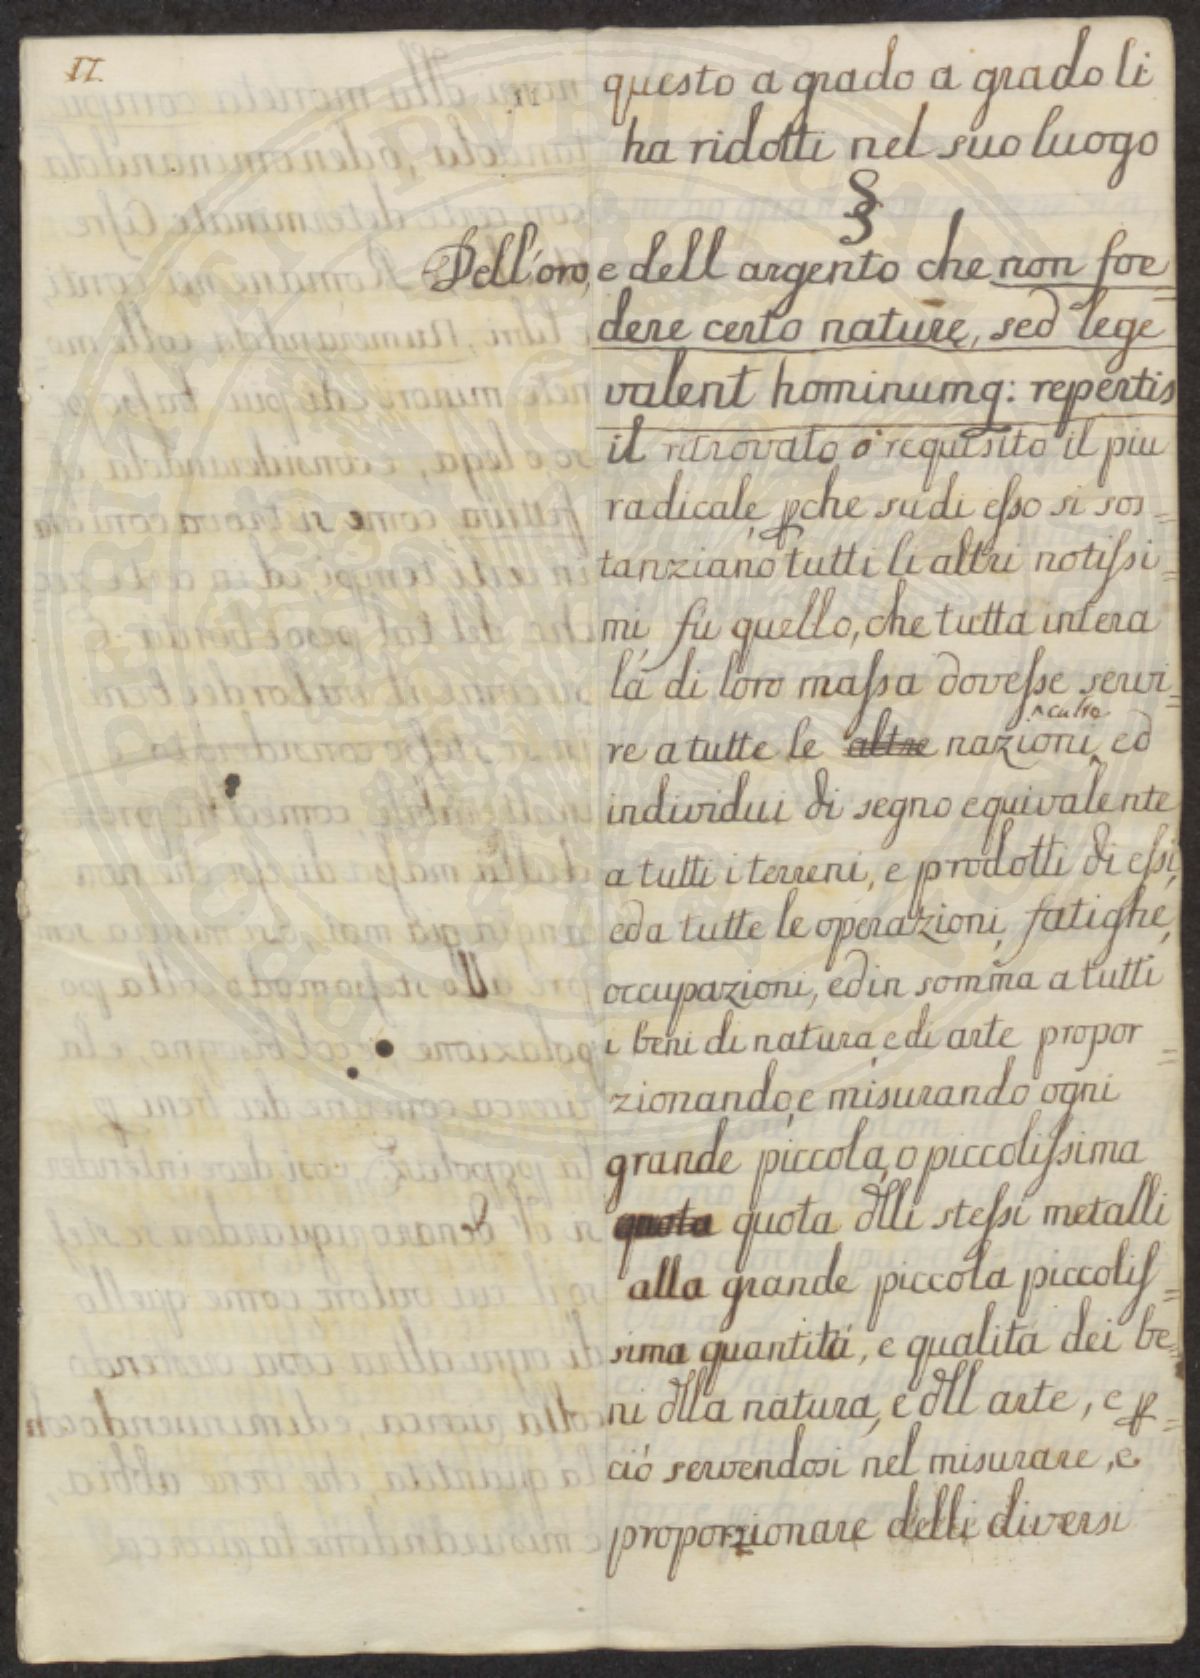 17.
questo a grado a grado li
ha ridotti nel suo luogo
§
Dell'oro, e dell argento che non foe=
dere certo nature, sed lege
valent hominumq: repertis
il ritrovato o requisito il piu
radicale, pche su di esso si sos=
tanziano tutti li altri notissi=
mi, fu quello, che tutta intera
la di loro massa dovesse servi=
re a tutte le altre nazioni ^culte ed
individui di segno equivalente
a tutti i terreni, e prodotti di essi,
ed a tutte le operazioni, fatighe,
occupazioni, ed in somma a tutti
i beni di natura, e di arte propor=
zionando, e misurando ogni
grande piccola, o piccolissima
quota quota dlli stessi metalli
alla grande piccola piccolis=
sima quantitá, e qualitá dei be=
ni dlla natura, e dll arte, e p=
ció servendosi nel misurare, e
proporzionare delli diversi